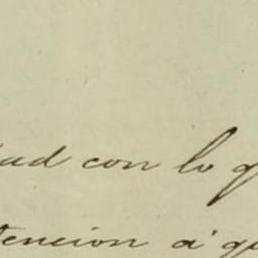 ud con lo q
tencion á qu